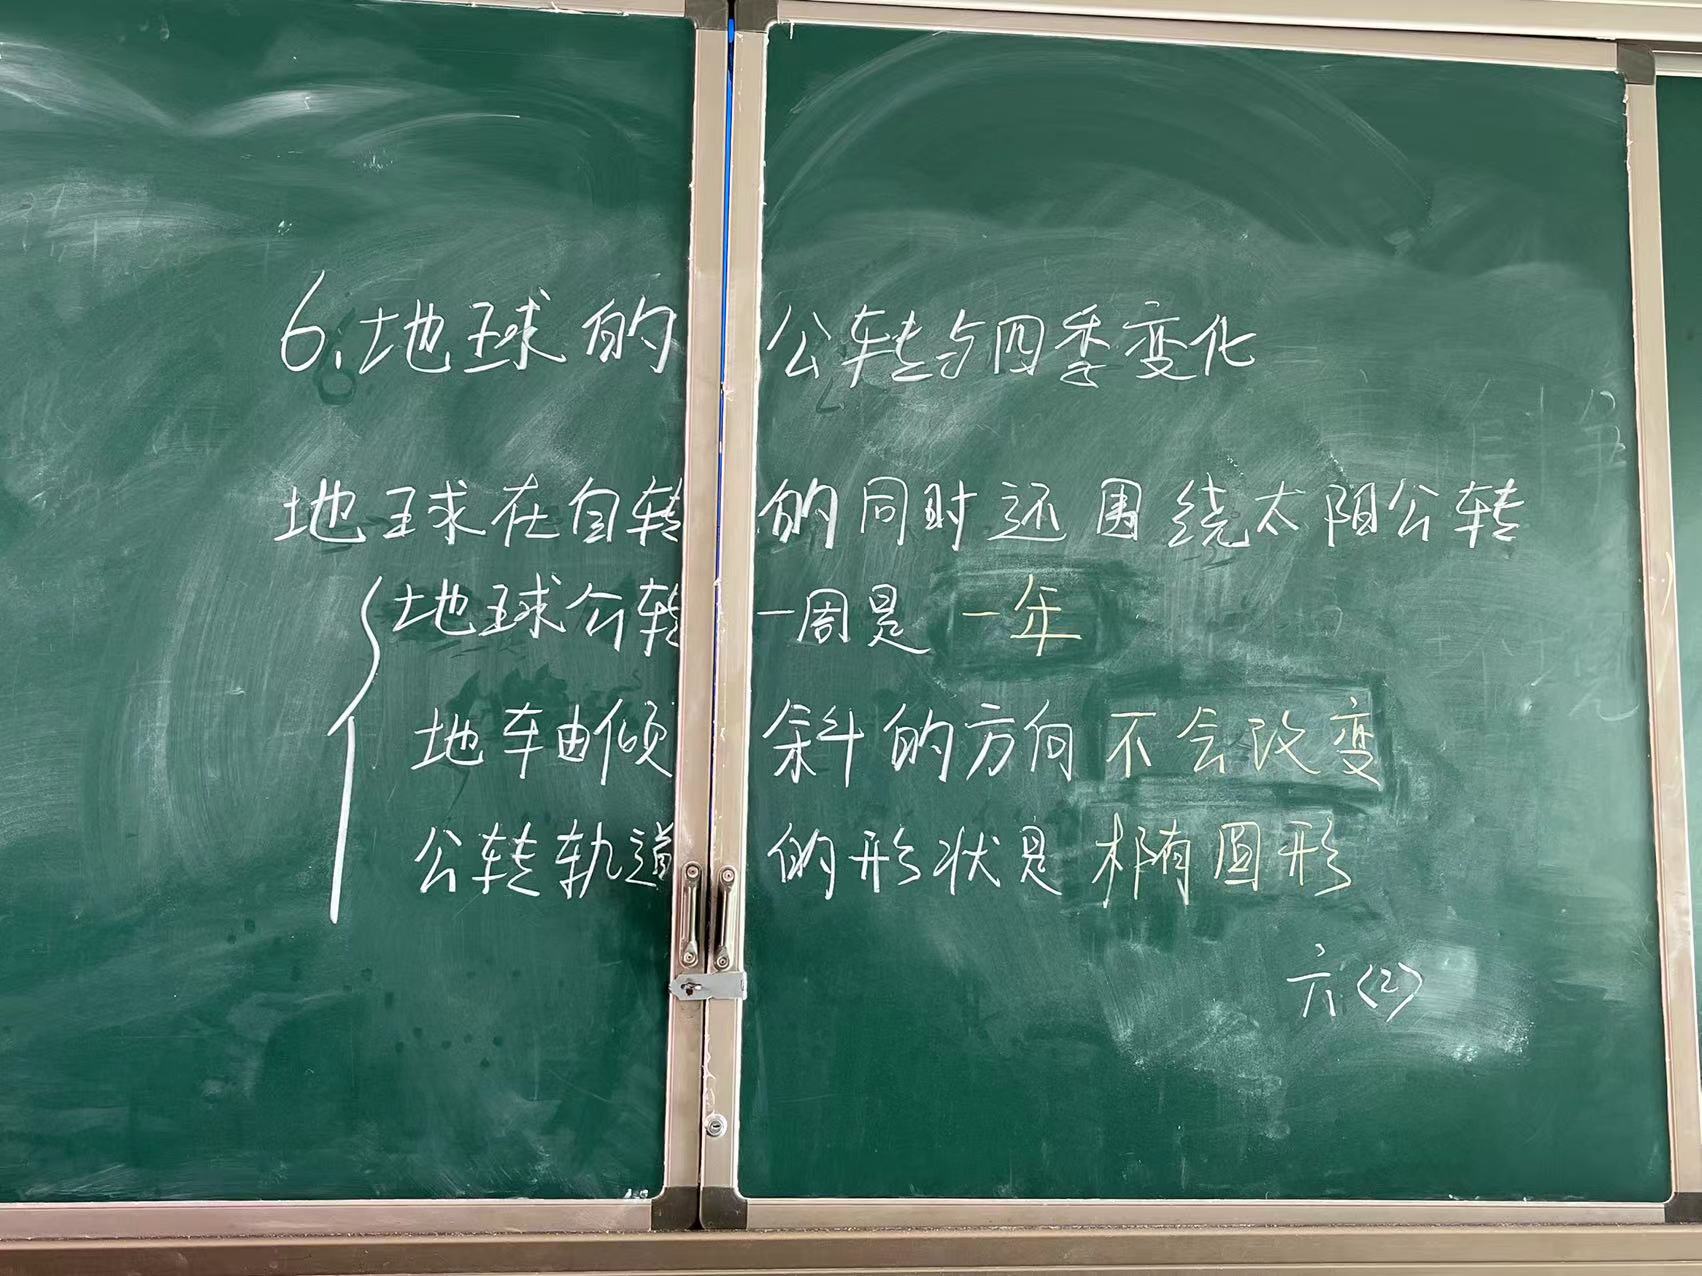 6.地球的公转与四季变化
地球在自转的同时还围绕太阳公转
地球公转一周是一年
地轴倾斜的方向不会改变
公转轨道的形状是椭圆形
六(2)